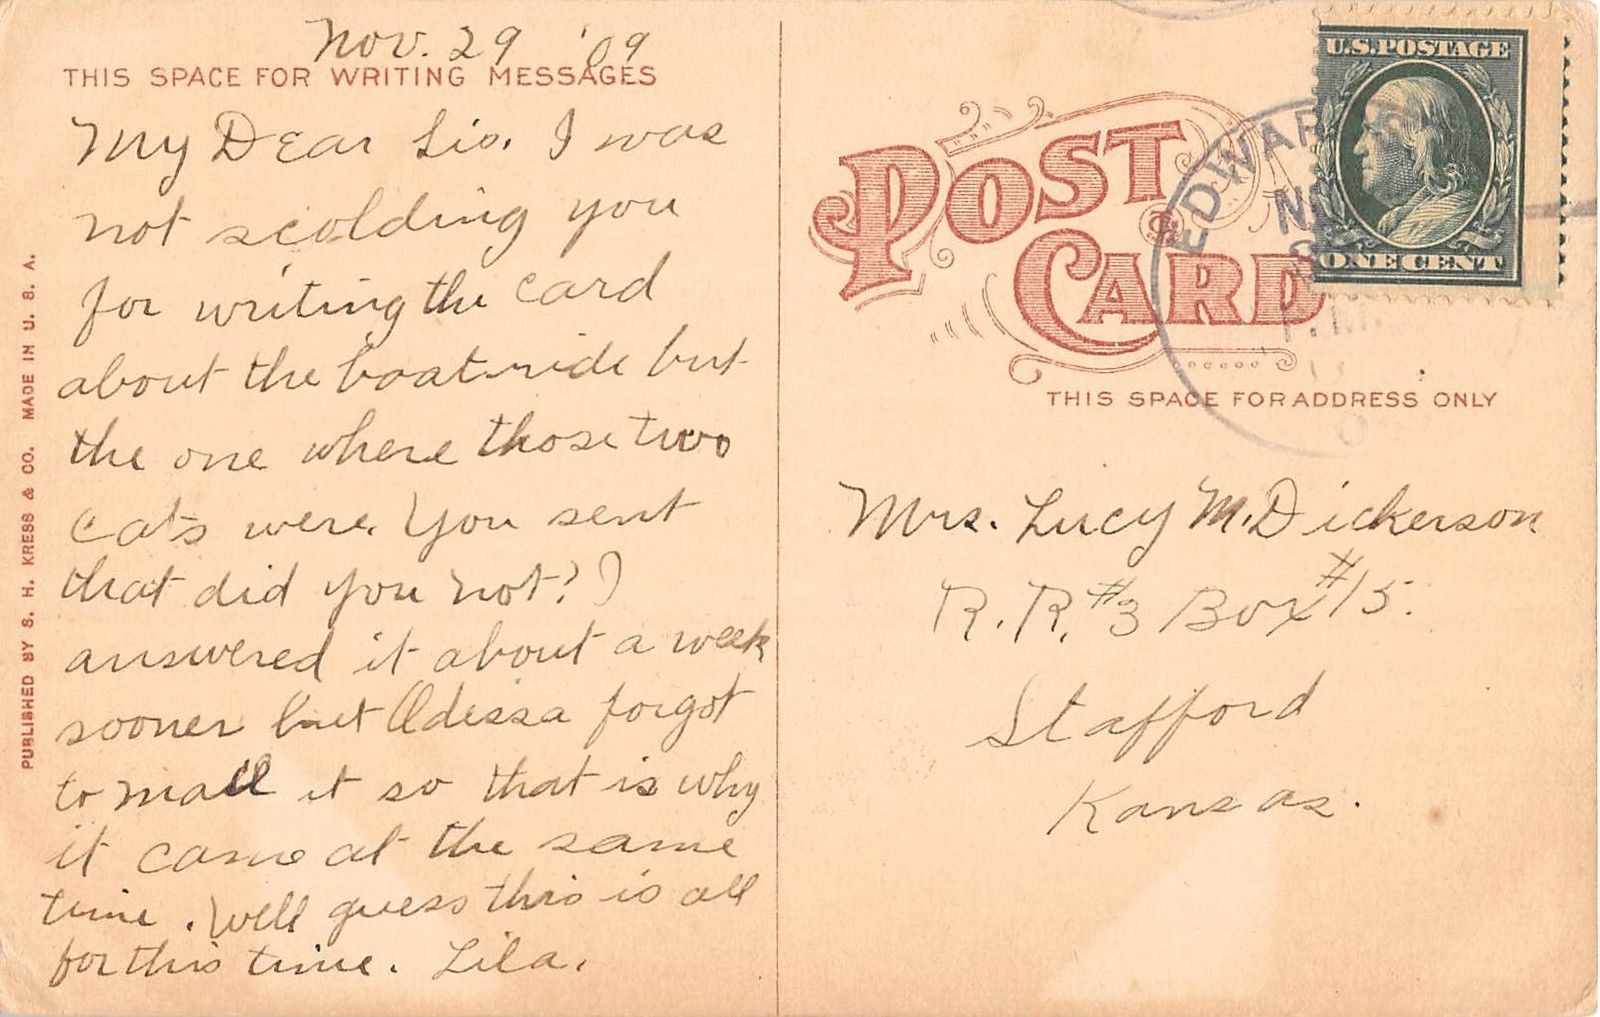 Nov. 29 '09
THIS SPACE FOR WRITING MESSAGES
My Dear Sis. I was
not scolding you
for writing the card
about the boat ride but
the one where those two
cats were. You sent
that did you not? I
answered it about a week
sooner but Odessa forgot
to mail it so that is why
it came at the same
time. Well guess this is all
for this time. Lila.
PUBLISHED BY S. H. KRESS & CO. MADE IN U. S. A.
POST CARD
U.S. POSTAGE
ONE CENT
EDWAR
NO
THIS SPACE FOR ADDRESS ONLY
Mrs. Lucy M. Dickerson
R. R. #3 Box #15.
Stafford
Kansas.